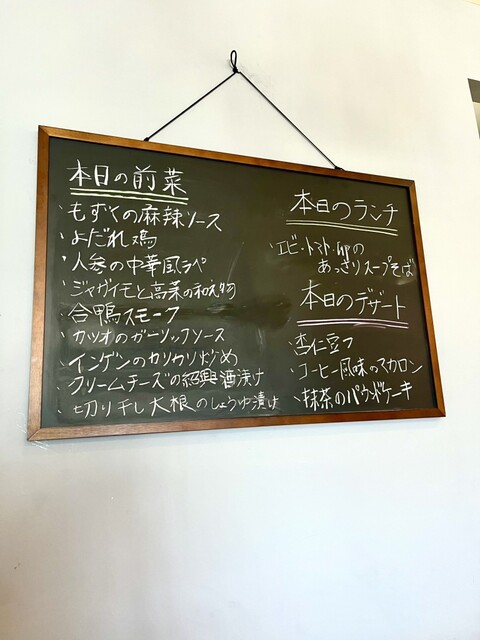 本日の前菜
・もずくの麻辣ソース
・よだれ鶏
・人参の中華風ラペ
・ジャガイモと高菜の和え物
・合鴨スモーク
・カツオのガーリックソース
・インゲンのカリカリ炒め
・クリームチーズの紹興酒漬け
・切り干し大根のしょうゆ漬け
本日のランチ
・エビ・トマト・
あっさりスープそば
本日のデザート
・杏仁豆フ
・コーヒー風味のマカロン
・抹茶のパウンドケーキ